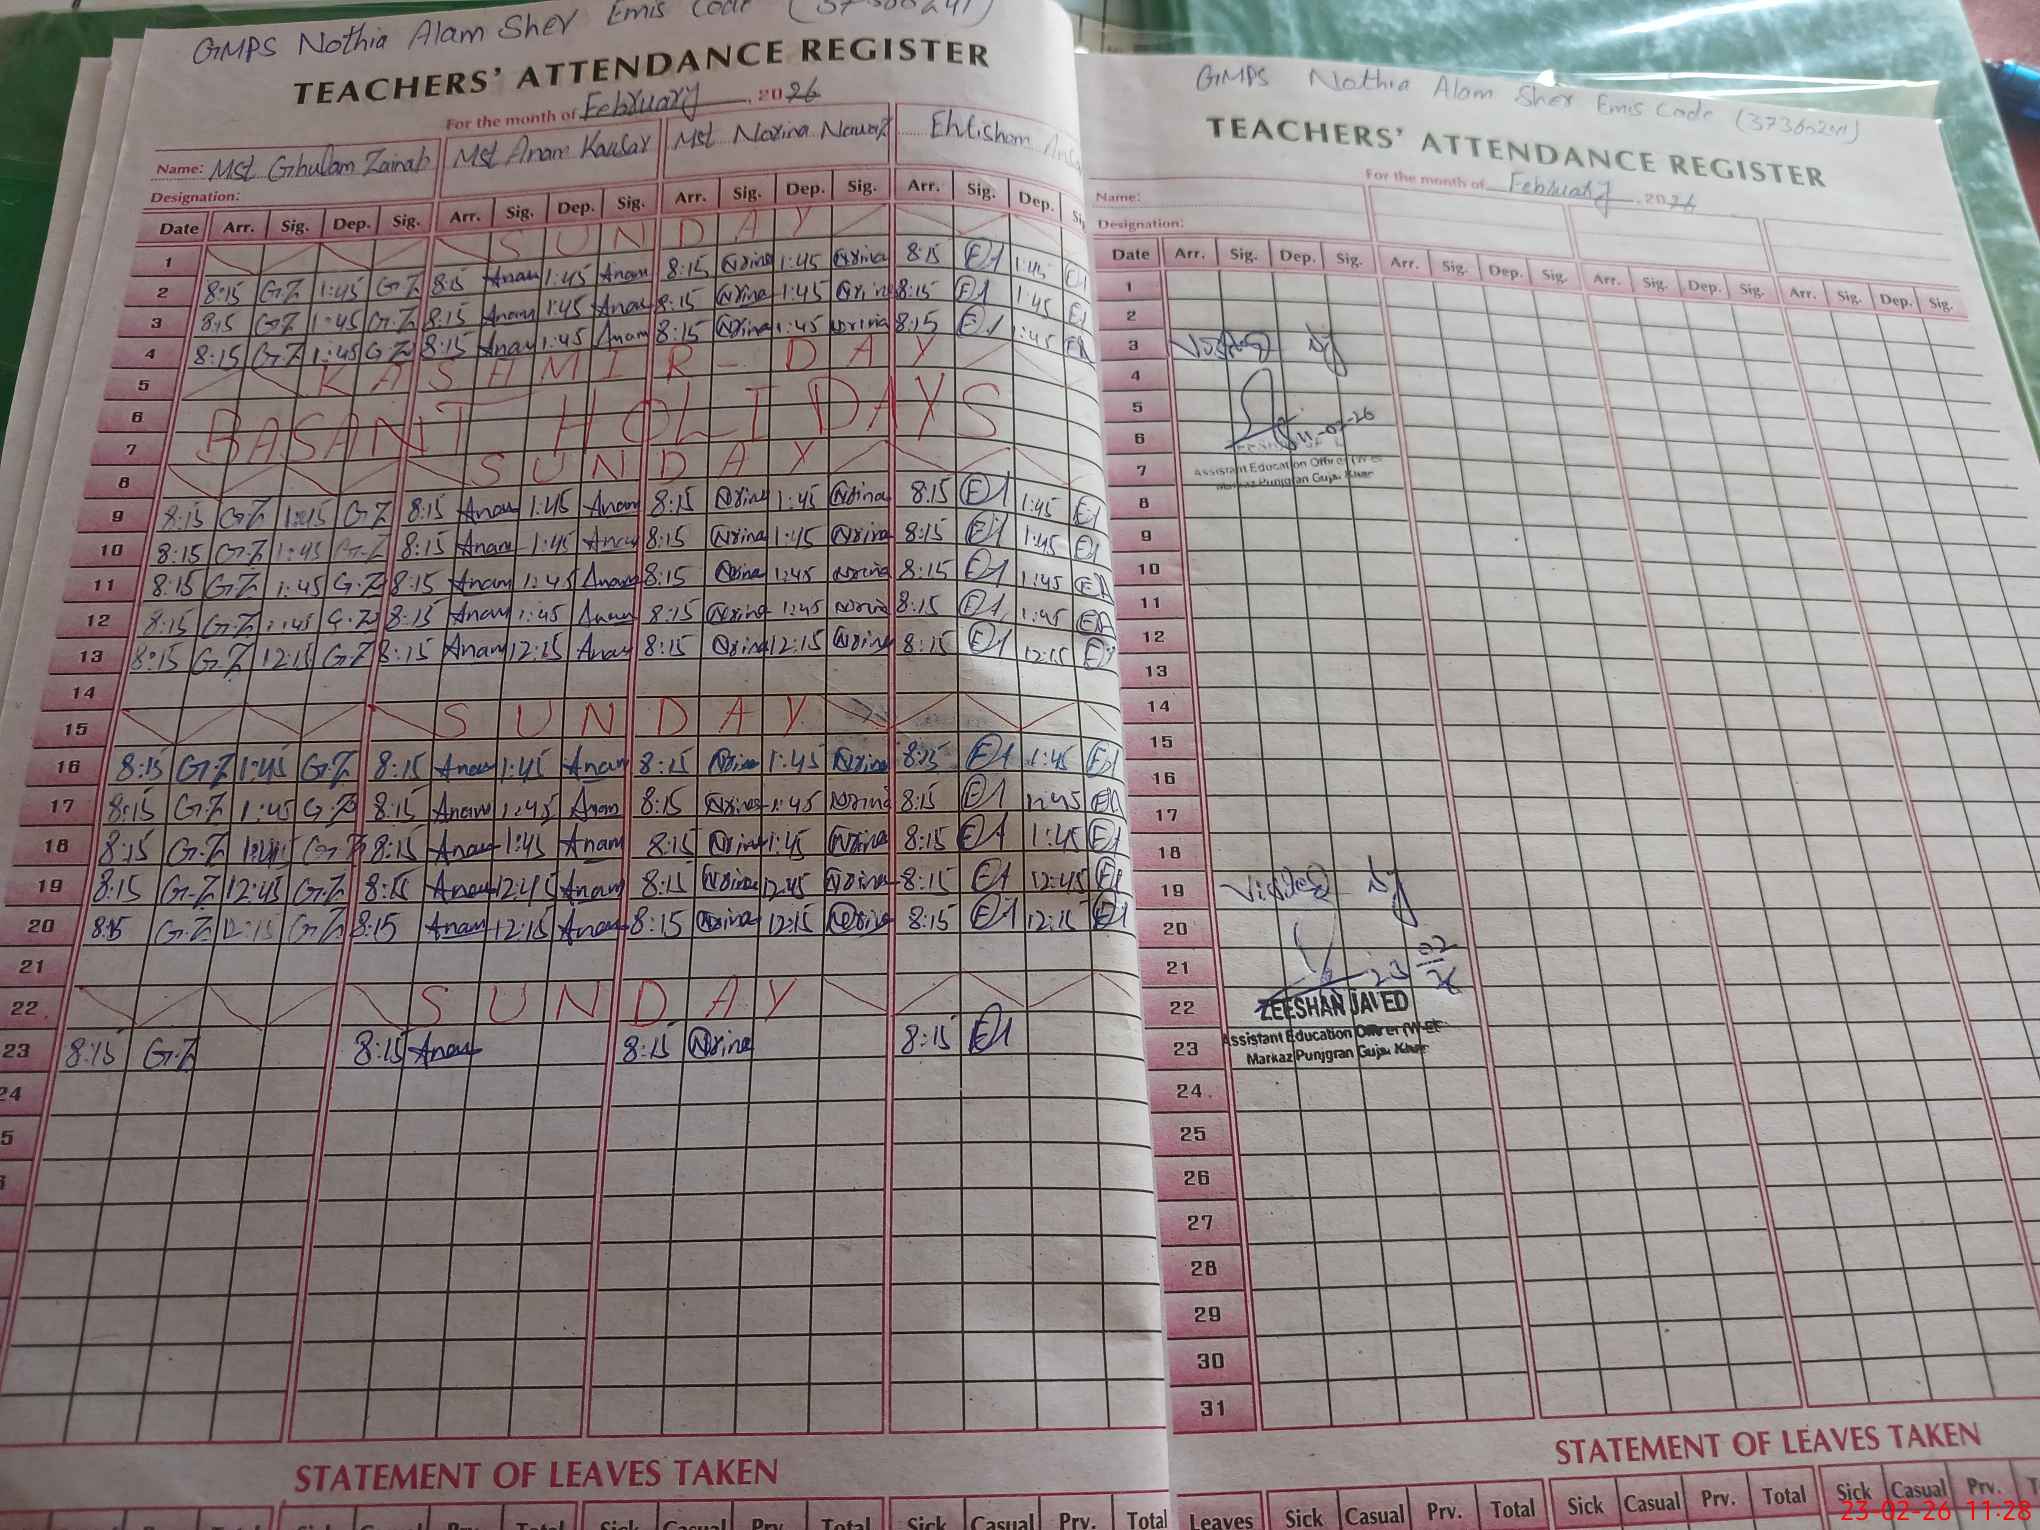 GMPS Nothia Alam Sher Emis Code (37360241)
TEACHERS' ATTENDANCE REGISTER
For the month of February, 2026
Name: Mst Ghulam Zainab Mst Anam Kausar Mst Norina Nawaz Ehtisham
Designation:
Date Arr. Sig. Dep. Sig. Arr. Sig. Dep. Sig. Arr. Sig. Dep. Sig. Arr. Sig. Dep.
1 SUNDAY
2 8:15 G.Z 1:45 G.Z 8:15 Anam 1:45 Anam 8:15 Nrina 1:45 Nrina 8:15 EA 1:45 EA
3 8:15 G.Z 1:45 G.Z 8:15 Anam 1:45 Anam 8:15 Nrina 1:45 Nrina 8:15 EA 1:45 EA
4 8:15 G.Z 1:45 G.Z 8:15 Anam 1:45 Anam 8:15 Nrina 1:45 Nrina 8:15 EA 1:45 EA
5 KASHMIR - DAY
6 BASANT HOLIDAYS
7
8 SUNDAY
9 8:15 G.Z 1:45 G.Z 8:15 Anam 1:45 Anam 8:15 Nrina 1:45 Nrina 8:15 EA 1:45 EA
10 8:15 G.Z 1:45 G.Z 8:15 Anam 1:45 Anam 8:15 Nrina 1:45 Nrina 8:15 EA 1:45 EA
11 8:15 G.Z 1:45 G.Z 8:15 Anam 1:45 Anam 8:15 Nrina 1:45 Nrina 8:15 EA 1:45 EA
12 8:15 G.Z 1:45 G.Z 8:15 Anam 1:45 Anam 8:15 Nrina 1:45 Nrina 8:15 EA 1:45 EA
13 8:15 G.Z 12:15 G.Z 8:15 Anam 12:15 Anam 8:15 Nrina 12:15 Nrina 8:15 EA 12:15 EA
14
15 SUNDAY
16 8:15 G.Z 1:45 G.Z 8:15 Anam 1:45 Anam 8:15 Nrina 1:45 Nrina 8:15 EA 1:45 EA
17 8:15 G.Z 1:45 G.Z 8:15 Anam 1:45 Anam 8:15 Nrina 1:45 Nrina 8:15 EA 1:45 EA
18 8:15 G.Z 1:45 G.Z 8:15 Anam 1:45 Anam 8:15 Nrina 1:45 Nrina 8:15 EA 1:45 EA
19 8:15 G.Z 12:45 G.Z 8:15 Anam 12:45 Anam 8:15 Nrina 12:45 Nrina 8:15 EA 12:45 EA
20 8:15 G.Z 12:15 G.Z 8:15 Anam 12:15 Anam 8:15 Nrina 12:15 Nrina 8:15 EA 12:15 EA
21
22 SUNDAY
23 8:15 G.Z 8:15 Anam 8:15 Nrina 8:15 EA
24
STATEMENT OF LEAVES TAKEN
Sick Casual Prv. Total Sick Casual Prv. Total Sick Casual Prv. Total
GMPS Nothia Alam Sher Emis Code (37360241)
TEACHERS' ATTENDANCE REGISTER
For the month of February, 2026
Name:
Designation:
Date Arr. Sig. Dep. Sig. Arr. Sig. Dep. Sig. Arr. Sig. Dep. Sig. Arr. Sig. Dep. Sig.
1
2
3 Visited by
4
5
6 11-02-26
7 Assistant Education Officer
Markaz Punjgran Gujar Khan
8
9
10
11
12
13
14
15
16
17
18
19 Visited by
20
21 23 02 26
22 ZEESHAN JAVED
23 Assistant Education Officer (W-EE
Markaz Punjgran Gujar Khan
24
25
26
27
28
29
30
31
STATEMENT OF LEAVES TAKEN
Leaves Sick Casual Prv. Total Sick Casual Prv. Total Sick Casual Prv.
23-02-26 11:28